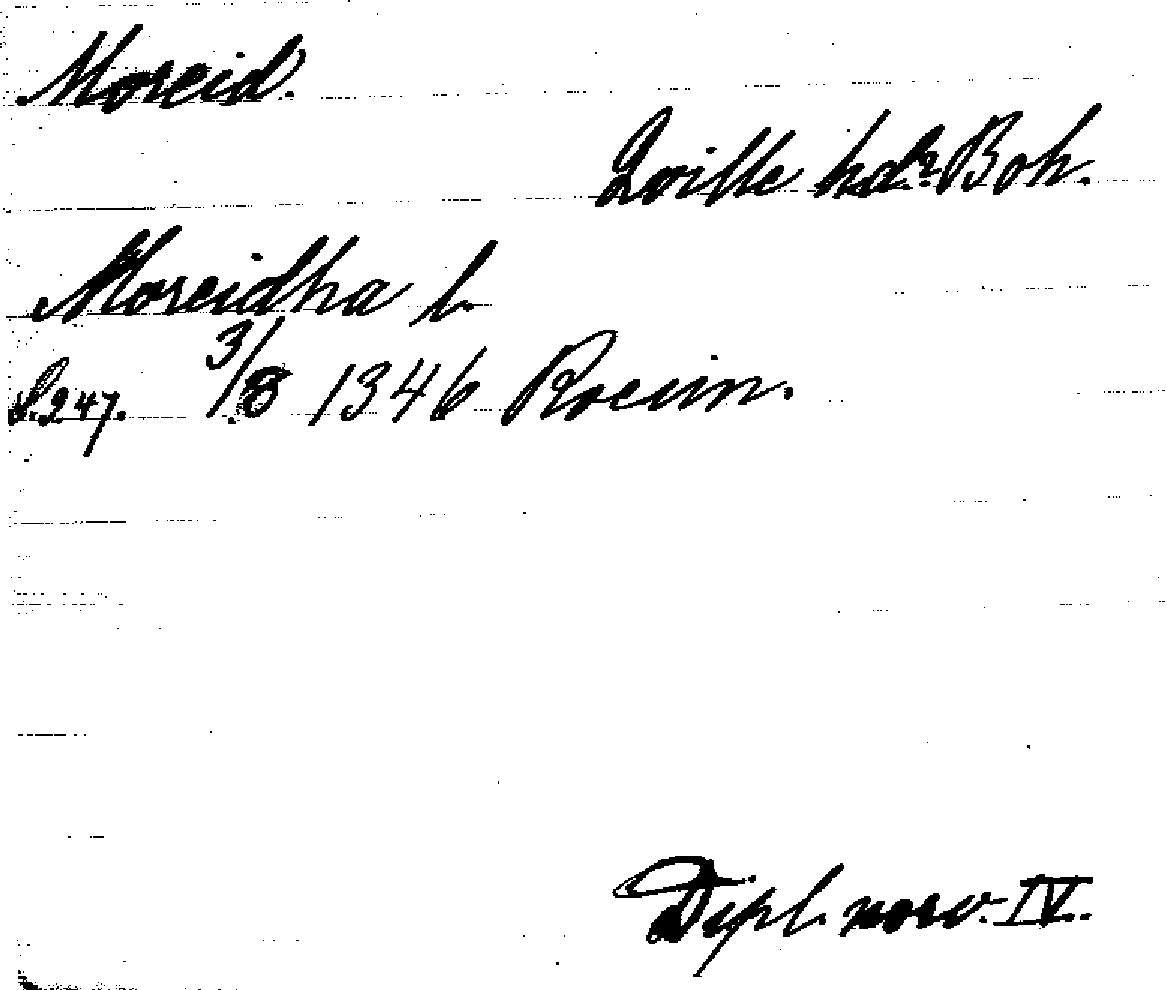 Moreid.
Qville hd. Boh.
Moreidha l.
S. 247. 3/8 1346 Rocum.
Dipl. norv. IV.